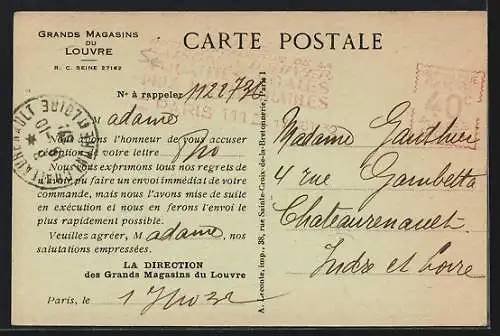 GRANDS MAGASINS
DU
LOUVRE
R. C. SEINE 27162
CARTE POSTALE
N° à rappeler 1122732
M adame
Nous avons l'honneur de vous accuser
réception de votre lettre
Nous vous exprimons tous nos regrets de
n'avoir pu faire un envoi immédiat de votre
commande, mais nous l'avons mise de suite
en exécution et nous en ferons l'envoi le
plus rapidement possible.
Veuillez agréer, M adame, nos
salutations empressées.
LA DIRECTION
des Grands Magasins du Louvre
Paris, le 1
A. Leconte, imp., 38, rue Sainte-Croix-de-la-Bretonnerie, Paris
Madame Gauthier
4 rue Gambetta
Chateaurenault
Indre et Loire
PARIS
40